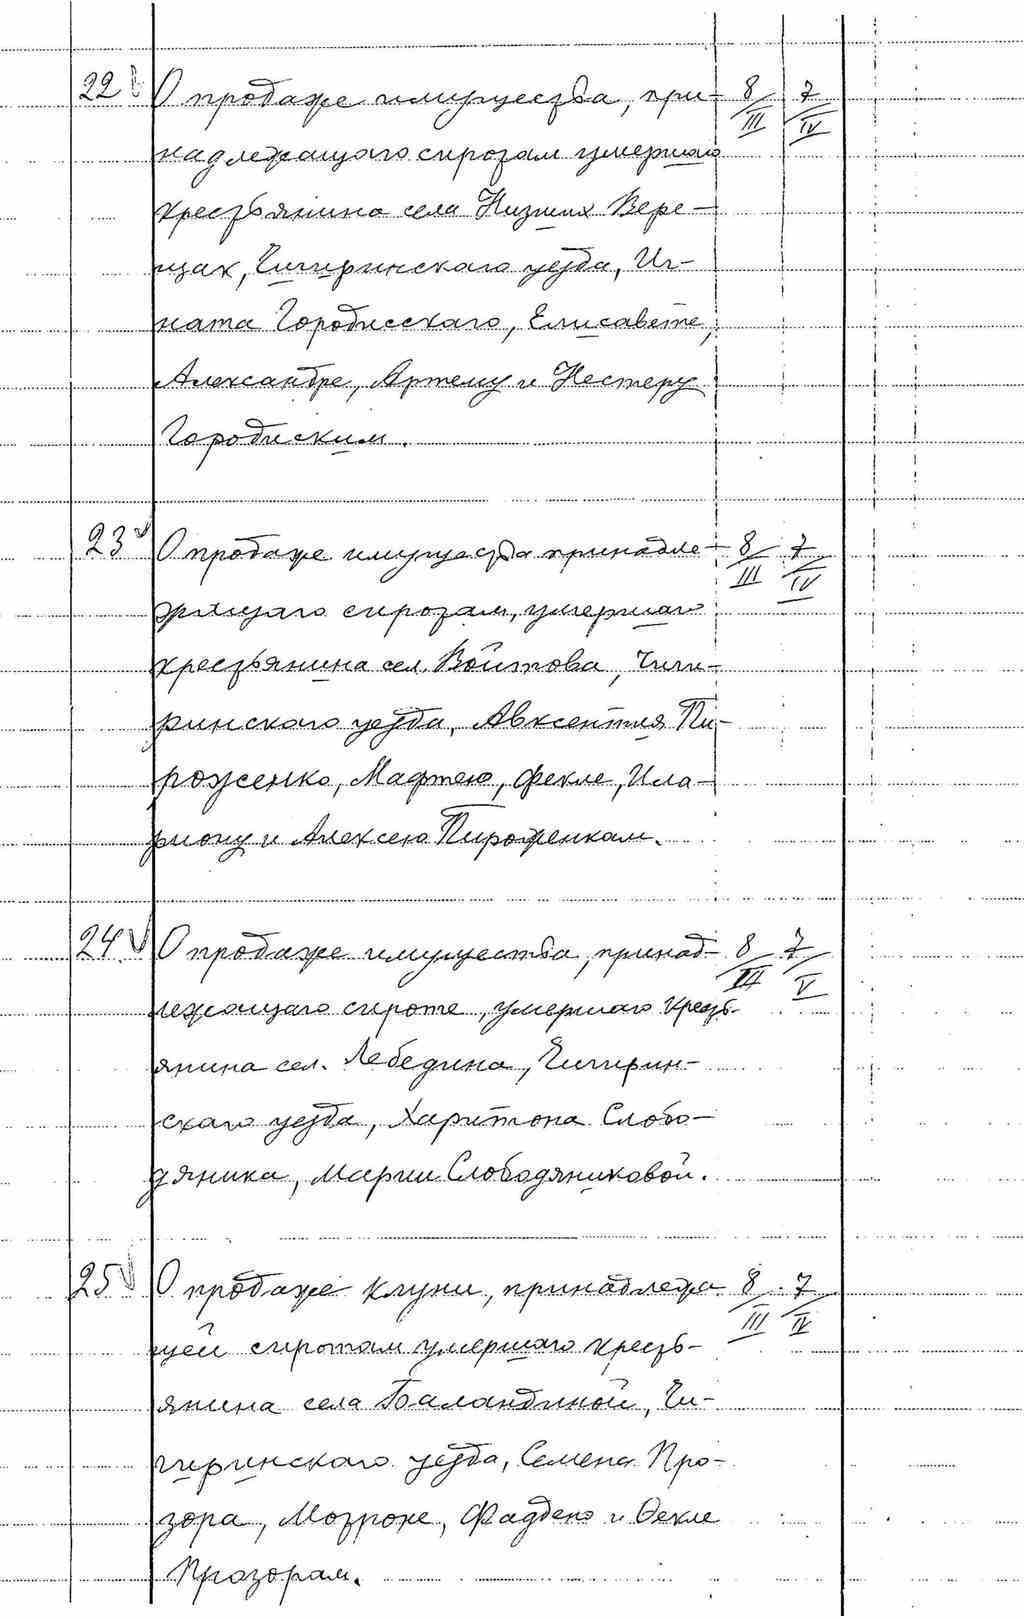 22 О продаже имущества, при- 8/III 7/IV
надлежащаго сиротам умершаго
крестьянина села Низших Вере-
щак, Чигиринскаго уезда, Иг-
ната Городисскаго, Елисавете,
Александре, Артему и Нестеру
Городиским.
23 О продаже имущества принадле- 8/III 7/IV
жащаго сиротам, умершаго
крестьянина сел. Войтова, Чиги-
ринскаго уезда, Авксентия Пи-
роженко, Мафтею, Фекле, Ила-
риону и Алексею Пироженкам.
24 О продаже имущества, принад- 8/III 7/V
лежащаго сироте, умершаго кресть-
янина сел. Лебедина, Чигирин-
скаго уезда, Харитона Слобо-
дяника, Марии Слободяниковой.
25 О продаже клуни, принадлежа 8/III 7/IV
щей сиротам умершаго кресть-
янина села Баландиной, Чи-
гиринскаго уезда, Семена Про-
зора, Мотроне, Фаддею и Фекле
Прозорам.